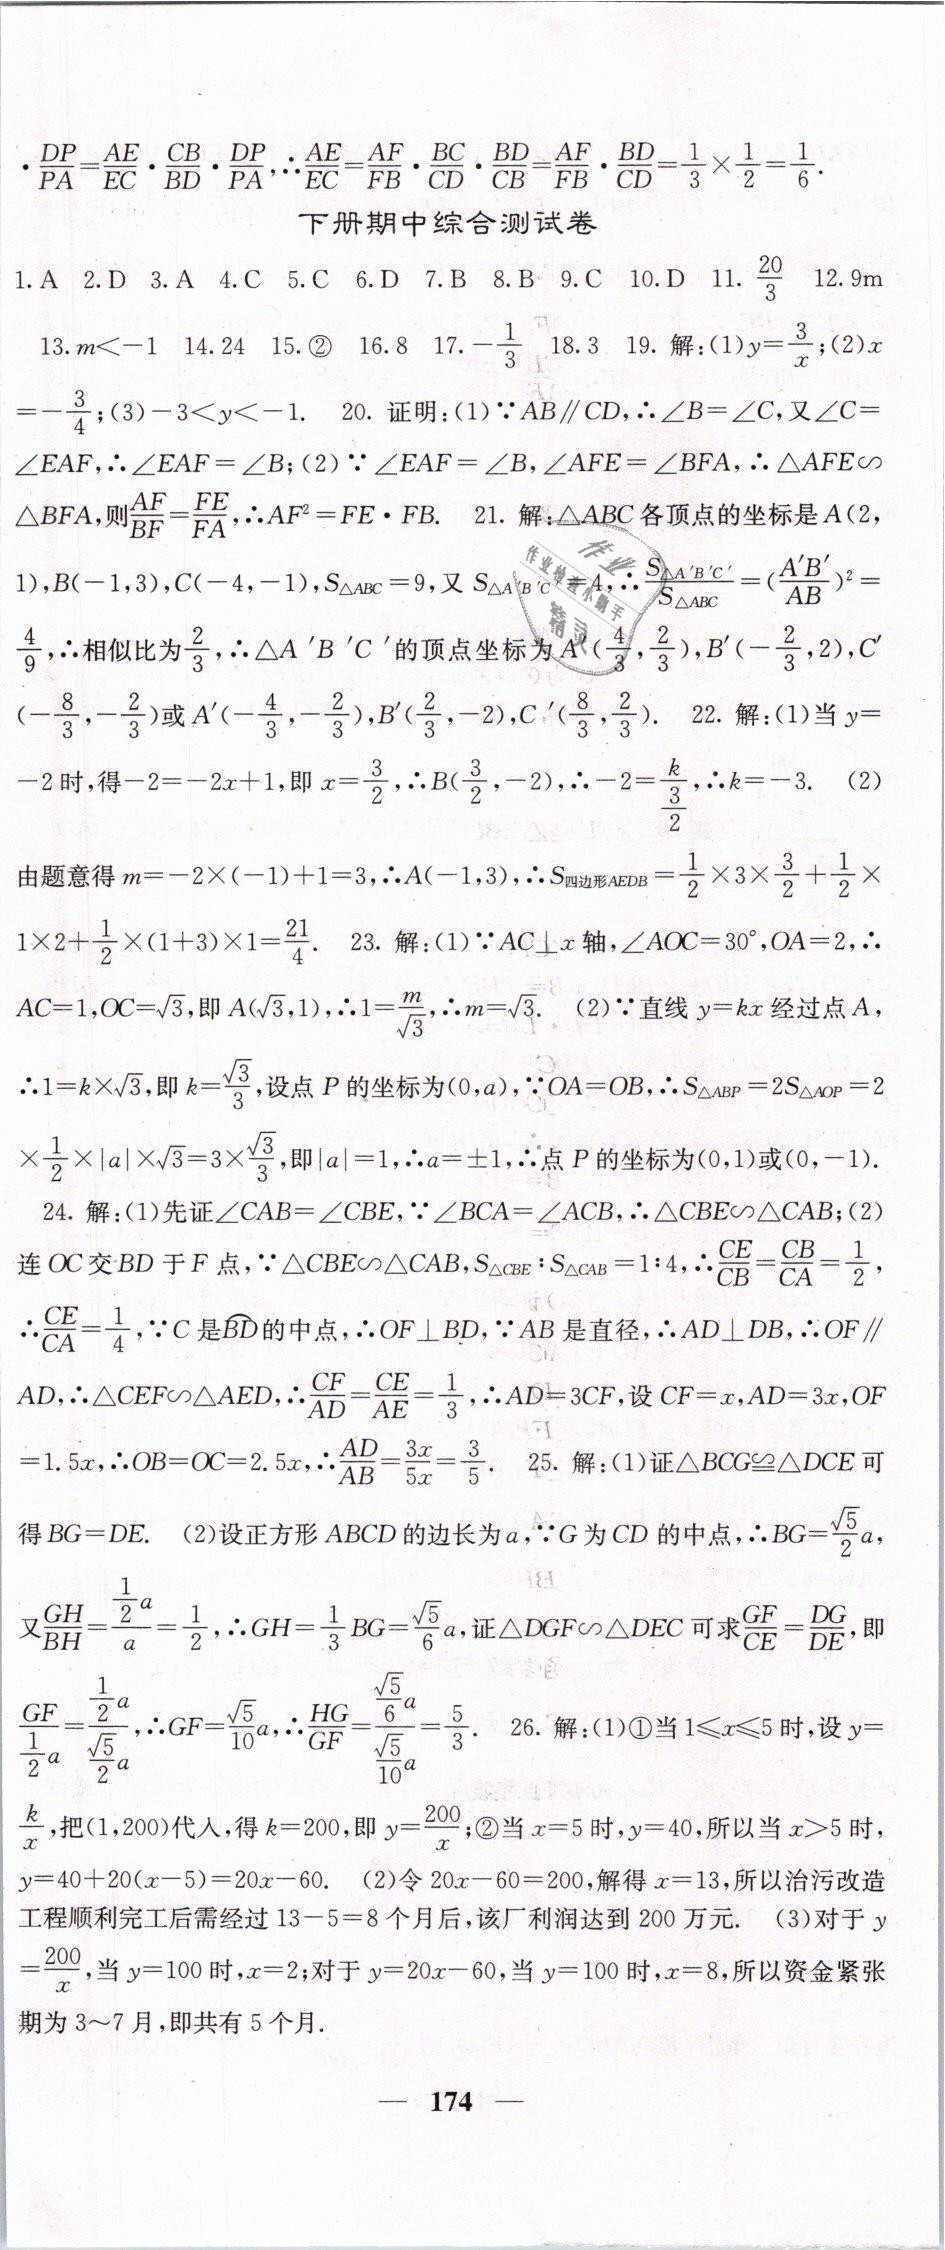 ·DP/PA=AE/EC·CB/BD·DP/PA,∴AE/EC=AF/FB·BC/CD·BD/CB=AF/FB·BD/CD=1/3×1/2=1/6.
下册期中综合测试卷
1. A 2. D 3. A 4. C 5. C 6. D 7. B 8. B 9. C 10. D 11. 20/3 12. 9m
13. m<-1 14. 24 15. ② 16. 8 17. -1/3 18. 3 19. 解:(1)y=3/x;(2)x
=-3/4;(3)-3<y<-1. 20. 证明:(1)∵AB∥CD,∴∠B=∠C,又∠C=
∠EAF,∴∠EAF=∠B;(2)∵∠EAF=∠B,∠AFE=∠BFA,∴△AFE∽
△BFA,则AF/BF=FE/FA,∴AF²=FE·FB. 21. 解:△ABC各顶点的坐标是A(2,
1),B(-1,3),C(-4,-1),S△ABC=9,又S△A′B′C′=4,∴S△A′B′C′/S△ABC=(A′B′/AB)²=
4/9,∴相似比为2/3,∴△A′B′C′的顶点坐标为A′(4/3,2/3),B′(-2/3,2),C′
(-8/3,-2/3)或A′(-4/3,-2/3),B′(2/3,-2),C′(8/3,2/3). 22. 解:(1)当y=
-2时,得-2=-2x+1,即x=3/2,∴B(3/2,-2),∴-2=k/(3/2),∴k=-3. (2)
由题意得m=-2×(-1)+1=3,∴A(-1,3),∴S四边形AEDB=1/2×3×3/2+1/2×
1×2+1/2×(1+3)×1=21/4. 23. 解:(1)∵AC⊥x轴,∠AOC=30°,OA=2,∴
AC=1,OC=√3,即A(√3,1),∴1=m/√3,∴m=√3. (2)∵直线y=kx经过点A,
∴1=k×√3,即k=√3/3,设点P的坐标为(0,a),∵OA=OB,∴S△ABP=2S△AOP=2
×1/2×|a|×√3=3×√3/3,即|a|=1,∴a=±1,∴点P的坐标为(0,1)或(0,-1).
24. 解:(1)先证∠CAB=∠CBE,∵∠BCA=∠ACB,∴△CBE∽△CAB;(2)
连OC交BD于F点,∵△CBE∽△CAB,S△CBE∶S△CAB=1∶4,∴CE/CB=CB/CA=1/2,
∴CE/CA=1/4,∵C是BD⌒的中点,∴OF⊥BD,∵AB是直径,∴AD⊥DB,∴OF∥
AD,∴△CEF∽△AED,∴CF/AD=CE/AE=1/3,∴AD=3CF,设CF=x,AD=3x,OF
=1.5x,∴OB=OC=2.5x,∴AD/AB=3x/5x=3/5. 25. 解:(1)证△BCG≌△DCE可
得BG=DE. (2)设正方形ABCD的边长为a,∵G为CD的中点,∴BG=√5/2a,
又GH/BH=(1/2a)/a=1/2,∴GH=1/3BG=√5/6a,证△DGF∽△DEC可求GF/CE=DG/DE,即
GF/(1/2a)=(1/2a)/(√5/2a),∴GF=√5/10a,∴HG/GF=(√5/6a)/(√5/10a)=5/3. 26. 解:(1)①当1≤x≤5时,设y=
k/x,把(1,200)代入,得k=200,即y=200/x;②当x=5时,y=40,所以当x>5时,
y=40+20(x-5)=20x-60. (2)令20x-60=200,解得x=13,所以治污改造
工程顺利完工后需经过13-5=8个月后,该厂利润达到200万元. (3)对于y
=200/x,当y=100时,x=2;对于y=20x-60,当y=100时,x=8,所以资金紧张
期为3~7月,即共有5个月.
— 174 —
作业
作业检查小助手
精灵